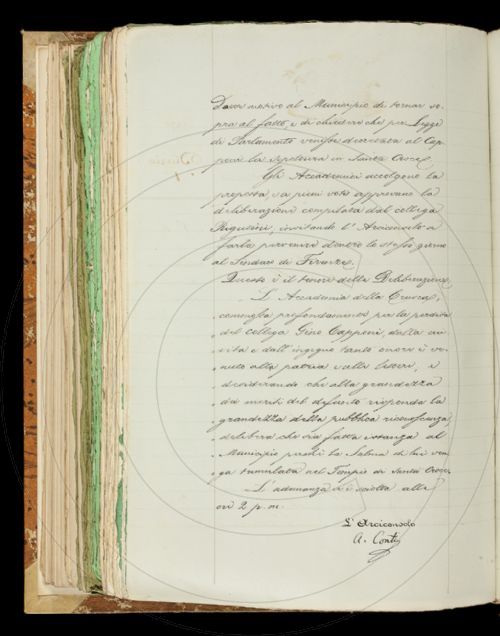 dare motivo al Municipio di tornar so-
pra al fatto, e di chiedere che per legge
di Parlamento venisse decretata al Cap-
poni la sepoltura in Santa Croce.
Gli Accademici accolgono la
proposta, e a pieni voti approvano la
deliberazione compilata dal collega
invitando l'Arciconsolo a
farla pervenire dentro lo stesso giorno
al Sindaco di Firenze.
Questo è il tenore della Deliberazione,
"L'Accademia della Crusca,
" commossa profondamente per la perdita
" del collega Gino Capponi, dalla cui
" vita e dall'ingegno tanto onore è ve-
" nuto alla patria e alle lettere, e
" desiderando che alla grandezza
" dei meriti del defunto risponda la
" grandezza della pubblica riconoscenza,
" delibera che sia fatta istanza al
" Municipio perchè la Salma di lui ven-
" ga tumulata nel Tempio di Santa Croce,
L'adunanza si è sciolta alle
ore 2 p. m.
L'Arciconsolo
A. Conti